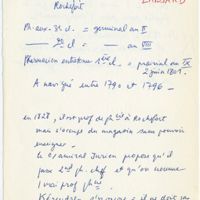 Rochefort
Ph. aux. 3e cl. = germinal an II
2e cl. = an VIII
Pharmacien entretenu 1ère cl. = prairial an IX
2 juin 1801.
A navigué entre 1790 et 1796 -
en 1828, il est prof de à Rochefort
mais s'occupe du magasin sans pouvoir
enseigner -
le c/amiral Jurien propose qu'il
passe 2e ph. chef et qu'on nomme
1 vrai prof
Kéraudren s'y oppose = il ne doit pas